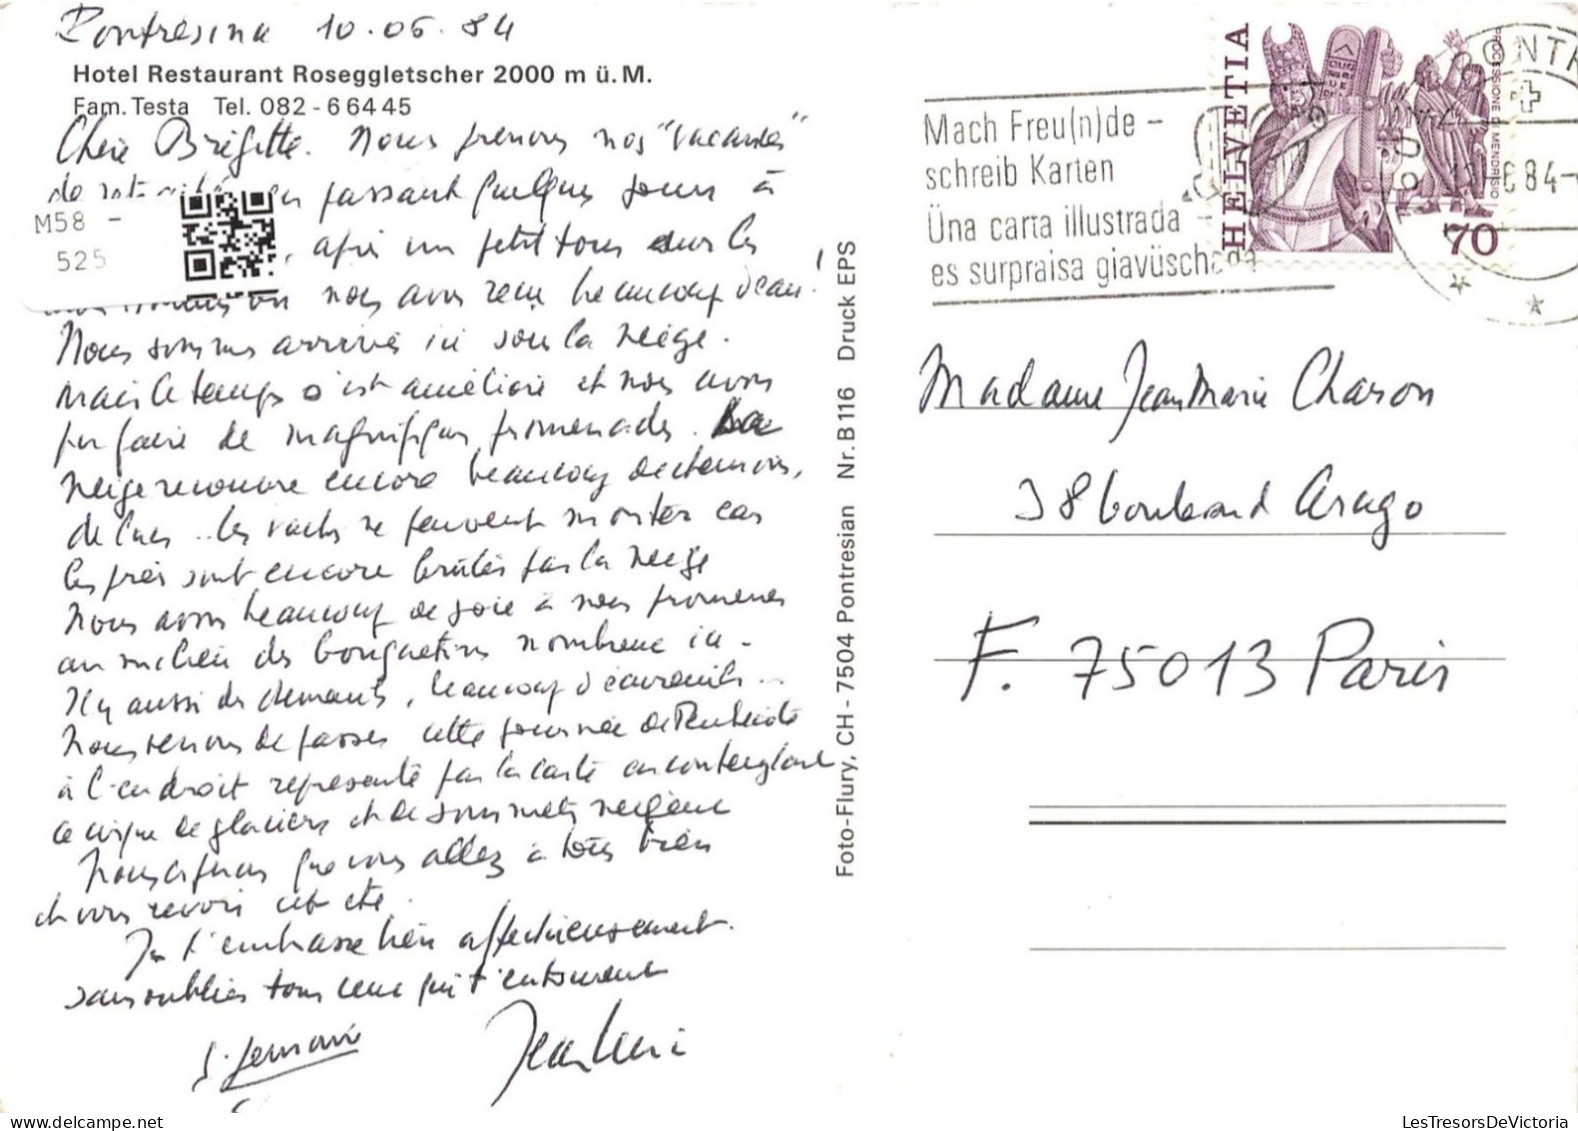 Pontresina 10.06.84
Hotel Restaurant Roseggletscher 2000 m ü. M.
Fam. Testa Tel. 082 - 6 64 45
Chère Brigitte. Nous prenons nos "vacances"
de en passant quelques jours à
M58 -
525
, après un petit tour sur les
nous avons reçu beaucoup d'eau!
Nous sommes arrivés ici sous la neige.
mais le temps s'est amélioré et nous avons
pu faire de magnifiques promenades. La
neige recouvre encore beaucoup de chemins,
de lacs .. les vaches ne peuvent monter car
les prés sont encore brûlés par la neige
Nous avons beaucoup de joie à nous promener
au milieu des bouquetins nombreux ici.
Il y aussi des chamois, beaucoup d'écureuils...
Nous venons de passer cette journée de Pentecôte
à l'endroit représenté par la carte en contemplant
ce cirque de glaciers et de sommets neigeux
Nous espérons que vous allez à tous bien
et vous revoir cet été.
Je t'embrasse bien affectueusement
sans oublier tous ceux qui t'entourent
Jean
Foto-Flury, CH - 7504 Pontresian Nr. B 116 Druck EPS
Mach Freu(n)de -
schreib Karten
Üna carta illustrada -
es surpraisa giavüschada
HELVETIA
PROCESSIONE DI MENDRISIO
70
PONTR
84-
Madame Jean Marie Charon
38 boulevard Arago
F. 75013 Paris
LesTresorsDeVictoria